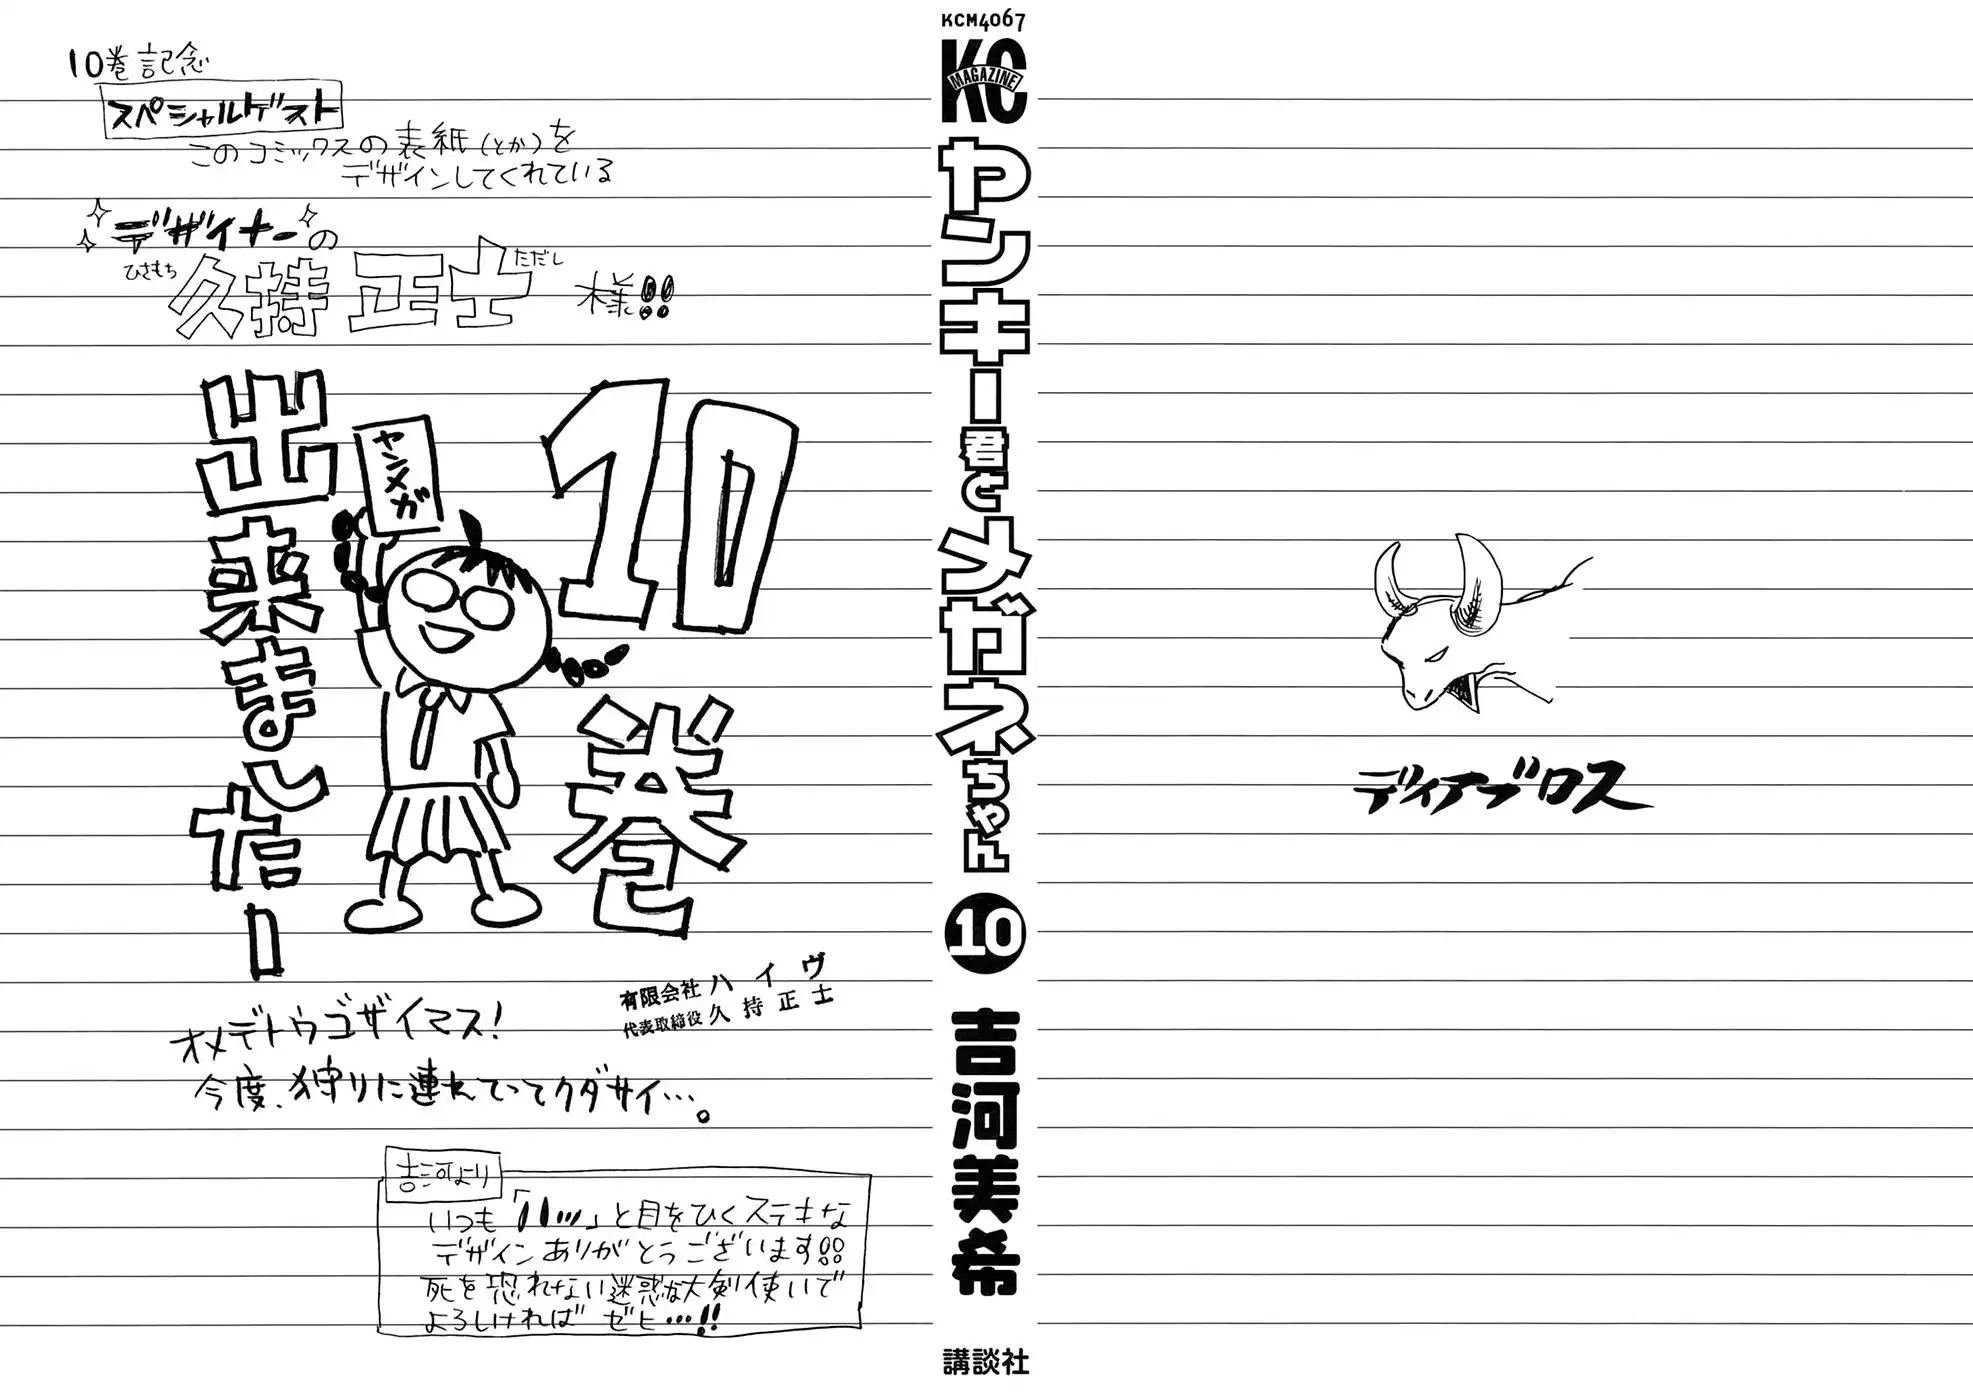 10巻記念
スペシャルゲスト
このコミックスの表紙(とか)を
デザインしてくれている
デザイナーの
ひさもち
ただし
久持 正士 様!!
10巻
出来ましたー
ヤンメガ
有限会社ハイヴ
代表取締役 久持正士
オメデトウゴザイマス!
今度、狩りに連れてってクダサイ…。
吉河より
いつも「ハッ」と目をひくステキな
デザインありがとうございます!!
死を恐れない迷惑な大剣使いで
よろしければ ゼヒ…!!
KCM4067
KC
MAGAZINE
ヤンキー君とメガネちゃん
10
吉河美希
講談社
ディアブロス